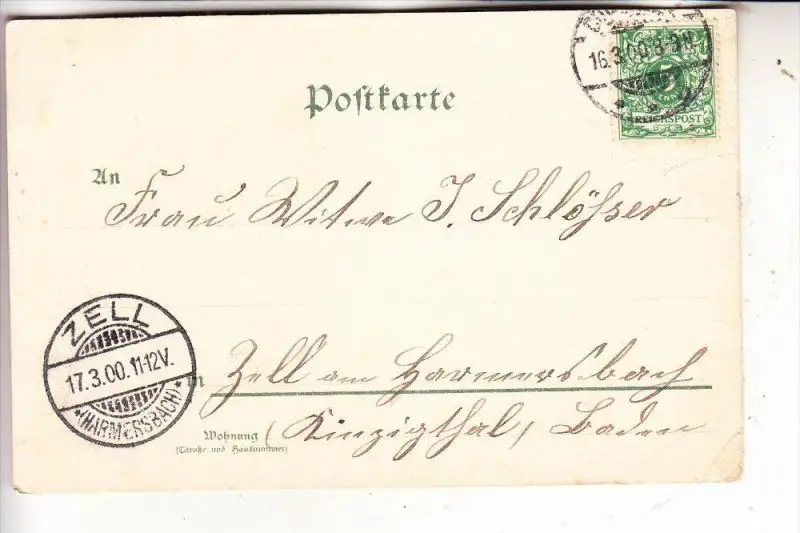 Postkarte
16.3.00.
5
REICHSPOST
An
Frau Witwe J. Schlößer
ZELL
17.3.00.11-12V.
*(HARMERSBACH)*
in Zell am Harmersbach
Wohnung (Kinzigthal, Baden
(Straße und Hausnummer)